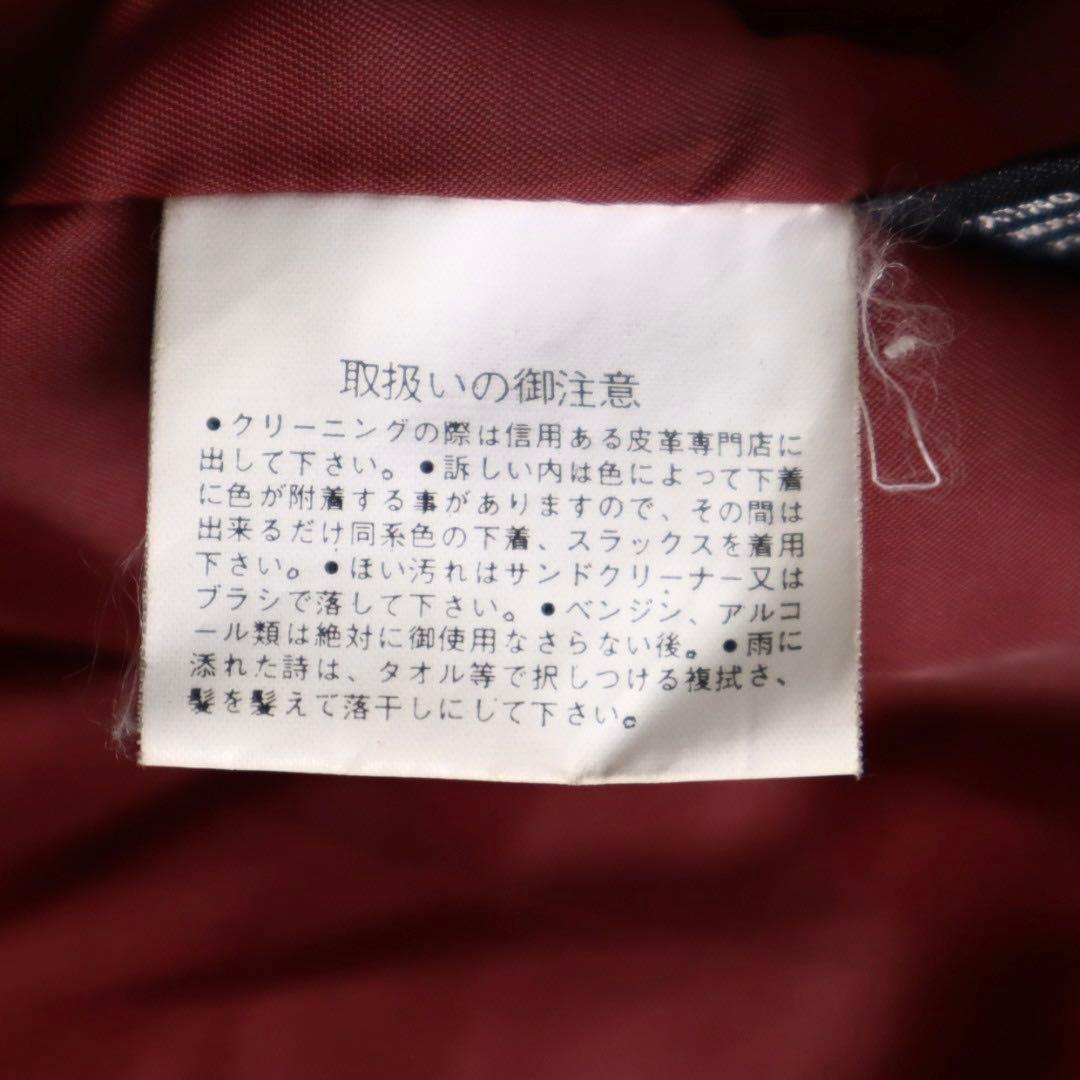 取扱いの御注意
●クリーニングの際は信用ある皮革専門店に
出して下さい。●訴しい内は色によって下着
に色が附着する事がありますので、その間は
出来るだけ同系色の下着、スラックスを着用
下さい。●ほい汚れはサンドクリーナー又は
ブラシで落して下さい。●ベンジン、アルコ
ール類は絶対に御使用なさらない後。●雨に
添れた詩は、タオル等で択しつける複拭さ、
髪を髪えて落干しにして下さい。